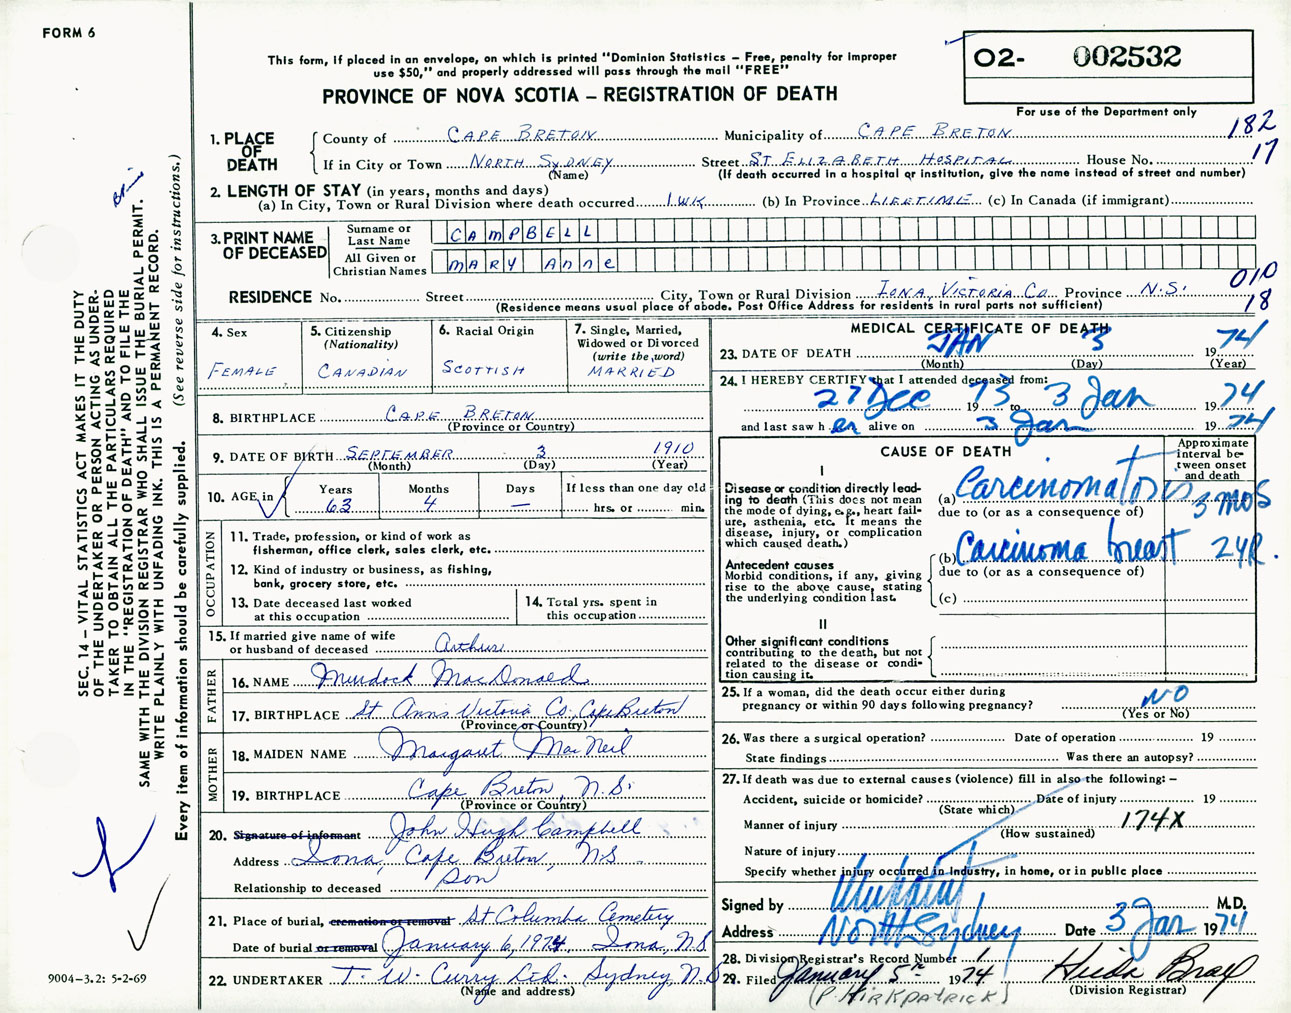 FORM 6
This form, if placed in an envelope, on which is printed "Dominion Statistics – Free, penalty for improper
use $50," and properly addressed will pass through the mail "FREE"
PROVINCE OF NOVA SCOTIA – REGISTRATION OF DEATH
02- 002532
For use of the Department only
182
17
1. PLACE OF DEATH
County of CAPE BRETON Municipality of CAPE BRETON
If in City or Town NORTH SYDNEY Street ST ELIZABETH HOSPITAL House No.
(Name) (If death occurred in a hospital or institution, give the name instead of street and number)
2. LENGTH OF STAY (in years, months and days)
(a) In City, Town or Rural Division where death occurred 1 WK (b) In Province LIFETIME (c) In Canada (if immigrant)
3. PRINT NAME OF DECEASED
Surname or Last Name CAMPBELL
All Given or Christian Names MARY ANNE
010
18
RESIDENCE No. Street City, Town or Rural Division IONA, VICTORIA CO. Province N.S.
(Residence means usual place of abode. Post Office Address for residents in rural parts not sufficient)
4. Sex
FEMALE
5. Citizenship
(Nationality)
CANADIAN
6. Racial Origin
SCOTTISH
7. Single, Married,
Widowed or Divorced
(write the word)
MARRIED
8. BIRTHPLACE CAPE BRETON
(Province or Country)
9. DATE OF BIRTH SEPTEMBER 3 1910
(Month) (Day) (Year)
10. AGE in
Years Months Days If less than one day old
63 4 — hrs. or min.
OCCUPATION
11. Trade, profession, or kind of work as
fisherman, office clerk, sales clerk, etc.
12. Kind of industry or business, as fishing,
bank, grocery store, etc.
13. Date deceased last worked
at this occupation
14. Total yrs. spent in
this occupation
15. If married give name of wife
or husband of deceased Arthur
FATHER
16. NAME Murdock MacDonald
17. BIRTHPLACE St Anns Victoria Co, Cape Breton
(Province or Country)
MOTHER
18. MAIDEN NAME Margaret MacNeil
19. BIRTHPLACE Cape Breton, N.S.
(Province or Country)
20. Signature of informant John Hugh Campbell
Address Iona, Cape Breton, NS
Relationship to deceased Son
21. Place of burial, cremation or removal St Columba Cemetery
Date of burial or removal January 6, 1974 Iona, N.S
22. UNDERTAKER T. W. Curry Ltd. Sydney, N.S
(Name and address)
MEDICAL CERTIFICATE OF DEATH
23. DATE OF DEATH JAN 3 1974
(Month) (Day) (Year)
24. I HEREBY CERTIFY that I attended deceased from:
27 Dec 1973 to 3 Jan 1974
and last saw h er alive on 3 Jan 1974
CAUSE OF DEATH
Approximate
interval be-
tween onset
and death
I
Disease or condition directly lead-
ing to death (This does not mean
the mode of dying, e.g., heart fail-
ure, asthenia, etc. It means the
disease, injury, or complication
which caused death.)
(a) Carcinomatosis 3 MOS
due to (or as a consequence of)
Antecedent causes
Morbid conditions, if any, giving
rise to the above cause, stating
the underlying condition last.
(b) Carcinoma breast 2 YR.
due to (or as a consequence of)
(c)
II
Other significant conditions
contributing to the death, but not
related to the disease or condi-
tion causing it.
25. If a woman, did the death occur either during
pregnancy or within 90 days following pregnancy? NO
(Yes or No)
26. Was there a surgical operation? Date of operation 19
State findings Was there an autopsy?
27. If death was due to external causes (violence) fill in also the following: –
Accident, suicide or homicide? Date of injury 19
(State which)
Manner of injury 174X
(How sustained)
Nature of injury
Specify whether injury occurred in industry, in home, or in public place
Signed by M.D.
Address North Sydney Date 3 Jan 1974
28. Division Registrar's Record Number 1
29. Filed January 5th 1974 Hilda Bray
(P. KIRKPATRICK) (Division Registrar)
SEC. 14 – VITAL STATISTICS ACT MAKES IT THE DUTY
OF THE UNDERTAKER OR PERSON ACTING AS UNDER-
TAKER TO OBTAIN ALL THE PARTICULARS REQUIRED
IN THE "REGISTRATION OF DEATH" AND TO FILE THE
SAME WITH THE DIVISION REGISTRAR WHO SHALL ISSUE THE BURIAL PERMIT.
WRITE PLAINLY WITH UNFADING INK. THIS IS A PERMANENT RECORD.
Every item of information should be carefully supplied. (See reverse side for instructions.)
9004–3.2: 5-2-69